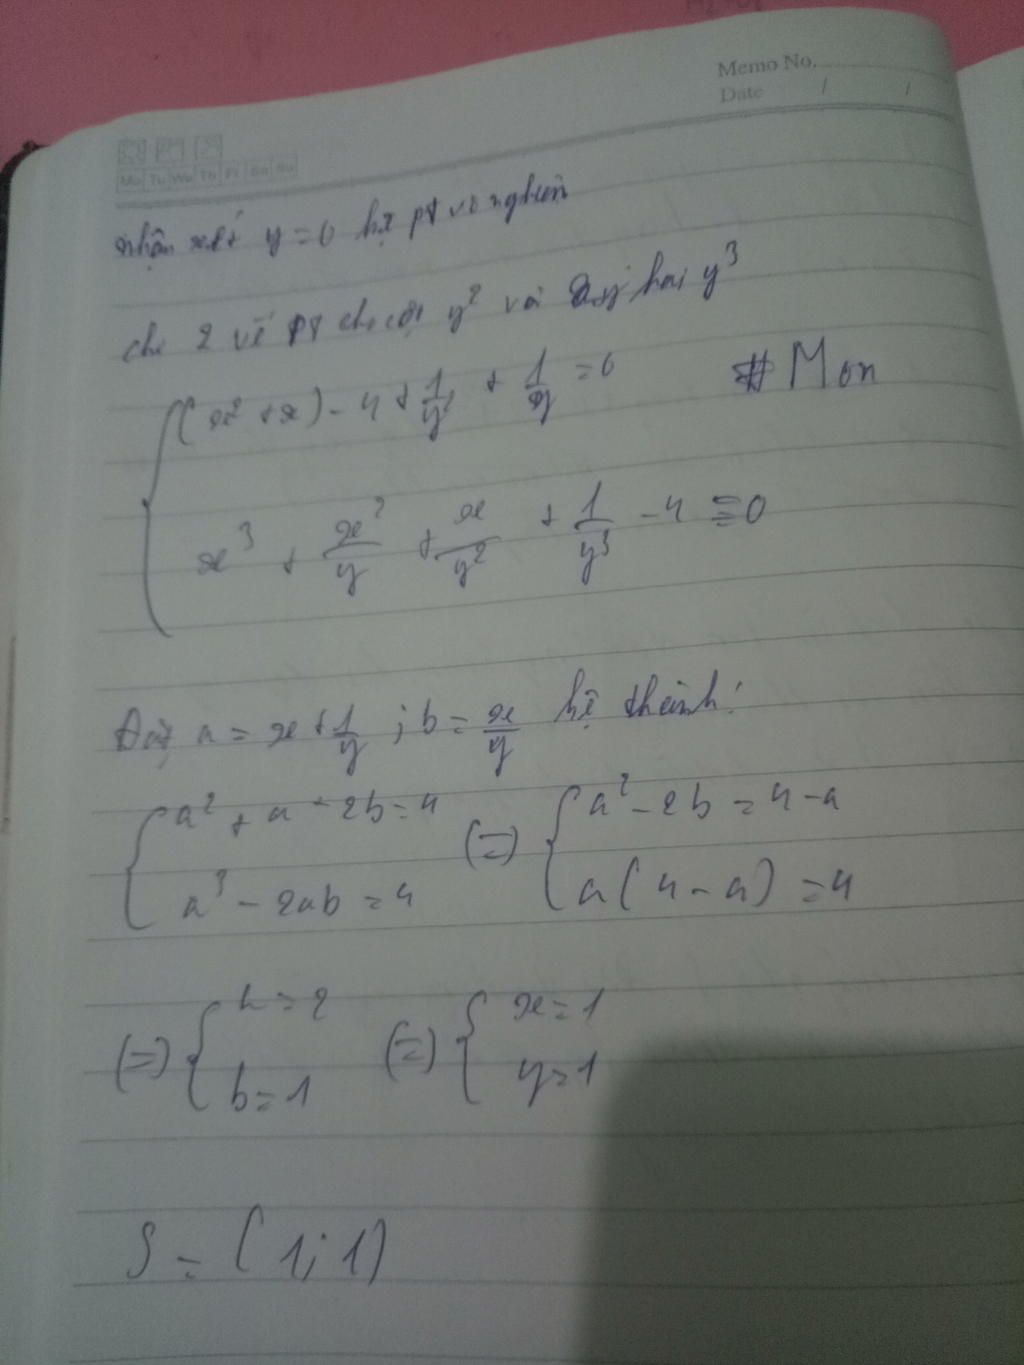 Memo No.
Date / /
Mo Tu We Th Fr Sa Su
Nhận xét y = 0 hệ pt vô nghiệm
chi 2 vế PT cho y² và hai y³
(x² + x) - 4 + 1/y² + 1/y = 0 # Mon
x³ + x²/y + x/y² + 1/y³ - 4 = 0
Đặt a = x + 1/y ; b = x/y hệ thành:
{ a² + a - 2b = 4 (=) { a² - 2b = 4 - a
a³ - 2ab = 4 a(4 - a) = 4
(=) { a = 2 (=) { x = 1
b = 1 y = 1
S = (1; 1)